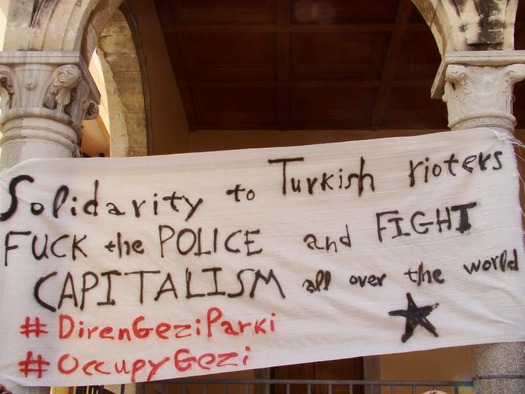 Solidarity to Turkish rioters
FUCK the POLICE and FIGHT
CAPITALISM all over the world
#DirenGeziParki
#OccupyGezi